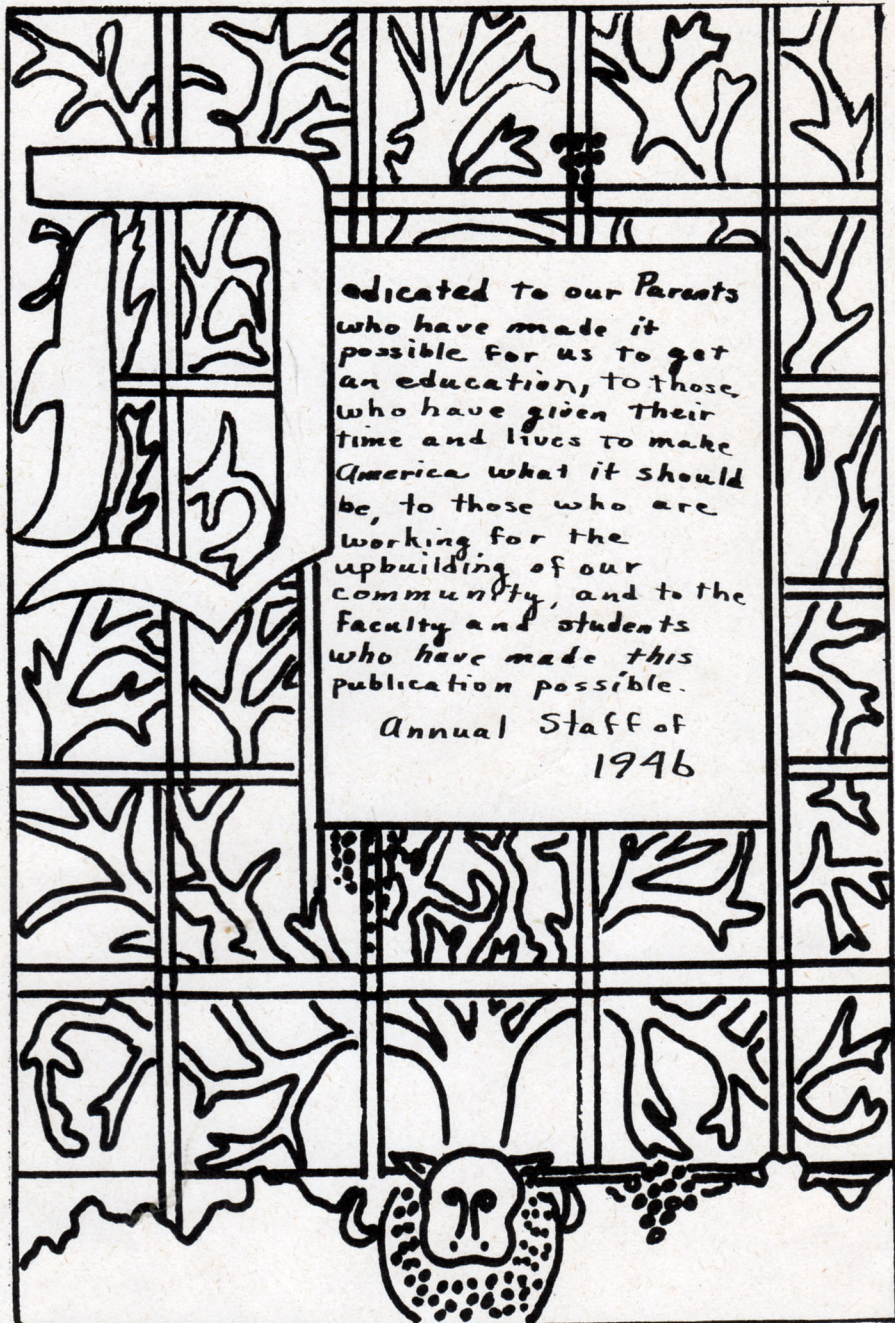 Dedicated to our Parents
who have made it
possible for us to get
an education, to those
who have given their
time and lives to make
America what it should
be, to those who are
working for the
upbuilding of our
community, and to the
faculty and students
who have made this
publication possible.
Annual Staff of
1946